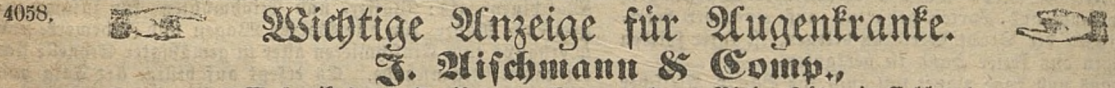 4058. Wichtige Anzeige für Augenkranke.
J. Aischmann & Comp.,